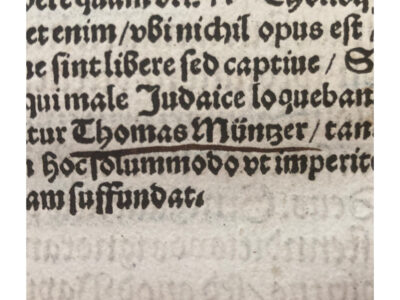 et enim/vbi nichil opus est/
ne sint libere sed captiue/ S
qui male Judaice loqueban
tur Thomas Müntzer/ tan
n hoc solummodo vt imperite
am suffundat.